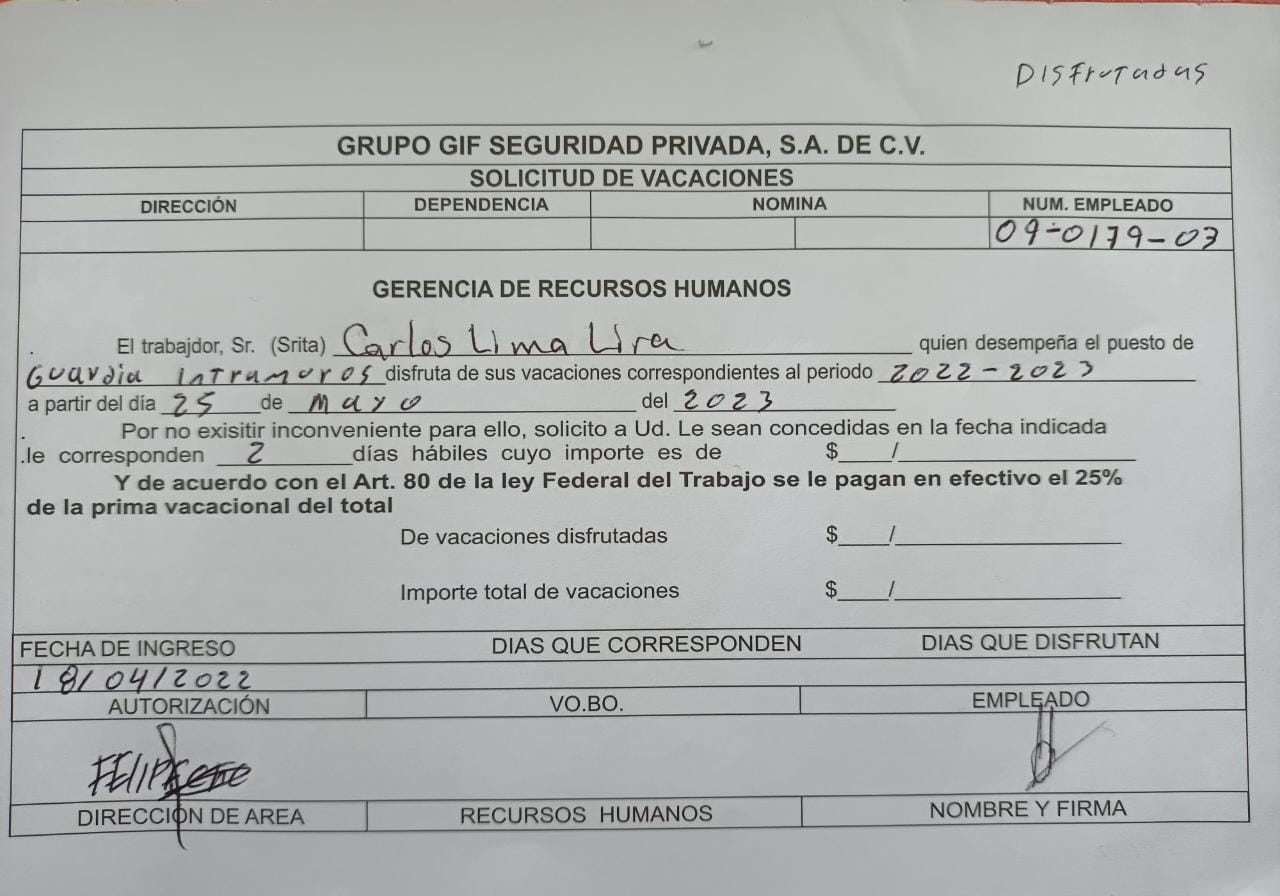 DISFrutadas
GRUPO GIF SEGURIDAD PRIVADA, S.A. DE C.V.
SOLICITUD DE VACACIONES
DIRECCIÓN DEPENDENCIA NOMINA NUM. EMPLEADO
09-0179-03
GERENCIA DE RECURSOS HUMANOS
El trabajdor, Sr. (Srita) Carlos Lima Lira quien desempeña el puesto de
Guardia Intramuros disfruta de sus vacaciones correspondientes al periodo 2022-2023
a partir del día 25 de Mayo del 2023
Por no exisitir inconveniente para ello, solicito a Ud. Le sean concedidas en la fecha indicada
.le corresponden 2 días hábiles cuyo importe es de $____/____
Y de acuerdo con el Art. 80 de la ley Federal del Trabajo se le pagan en efectivo el 25%
de la prima vacacional del total
De vacaciones disfrutadas $____/____
Importe total de vacaciones $____/____
FECHA DE INGRESO DIAS QUE CORRESPONDEN DIAS QUE DISFRUTAN
18/04/2022
AUTORIZACIÓN VO.BO. EMPLEADO
DIRECCIÓN DE AREA RECURSOS HUMANOS NOMBRE Y FIRMA